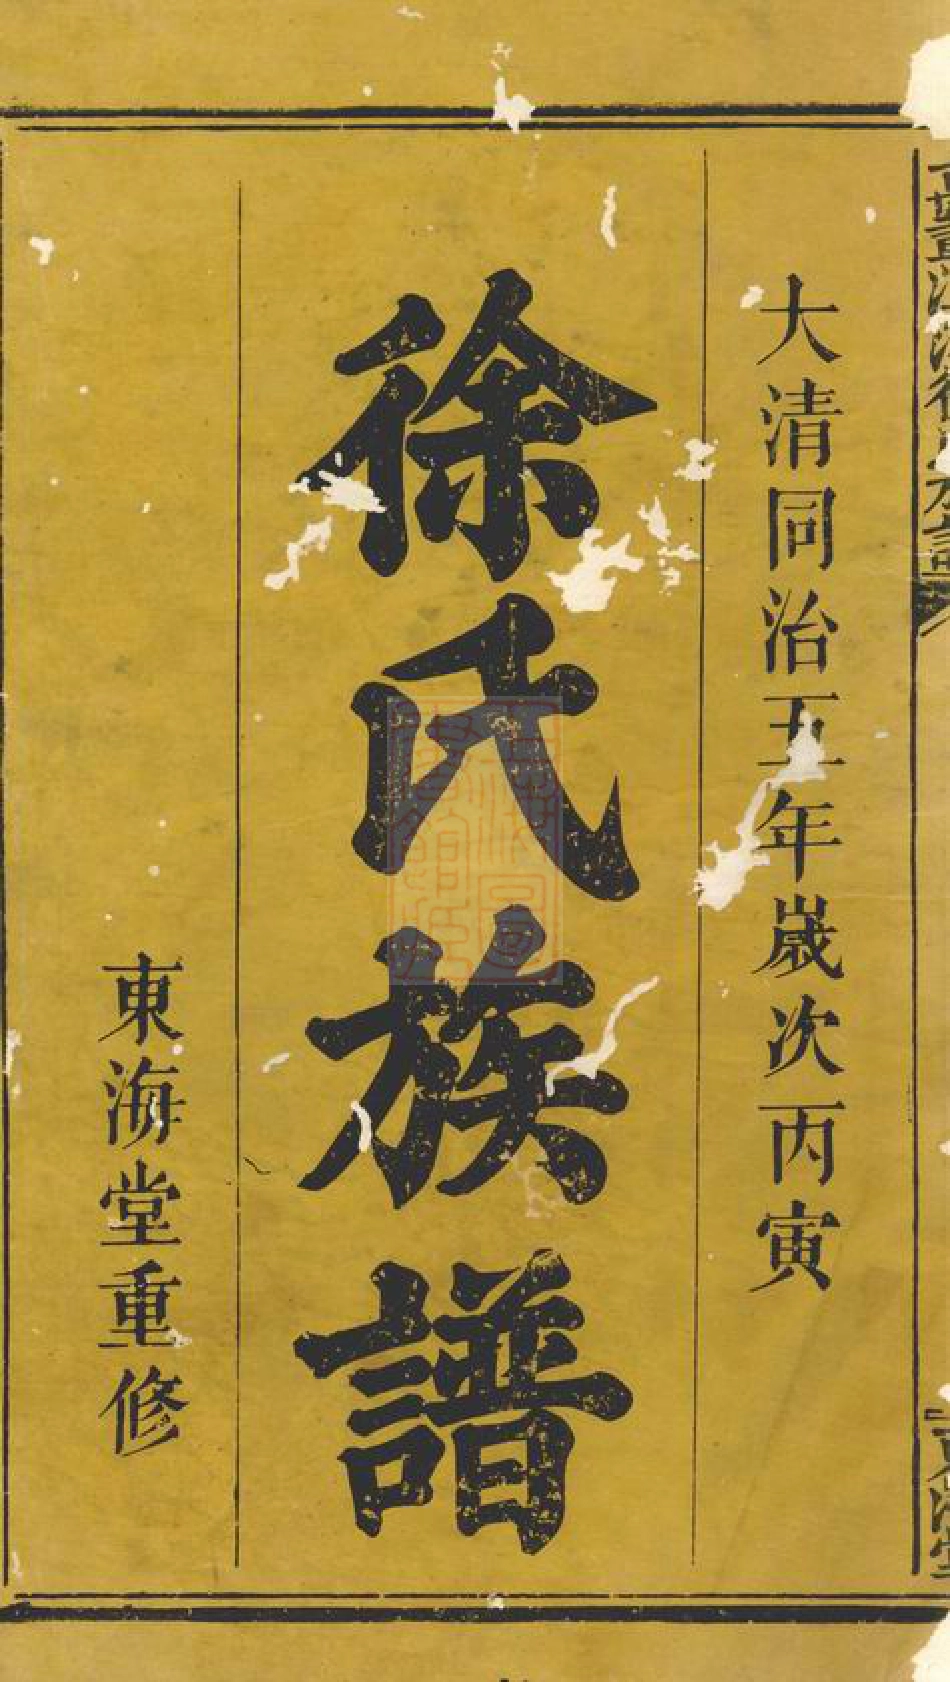 大清同治五年歲次丙寅
徐氏族譜
東海堂重修